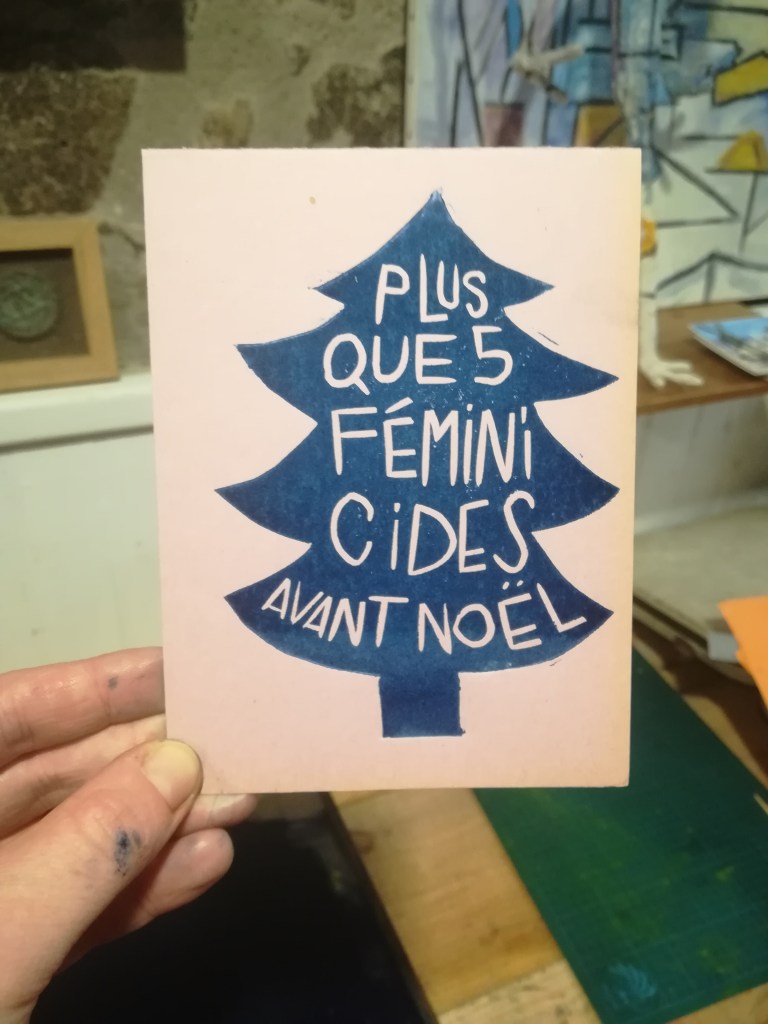 PLUS
QUE 5
FÉMINI
CIDES
AVANT NOËL